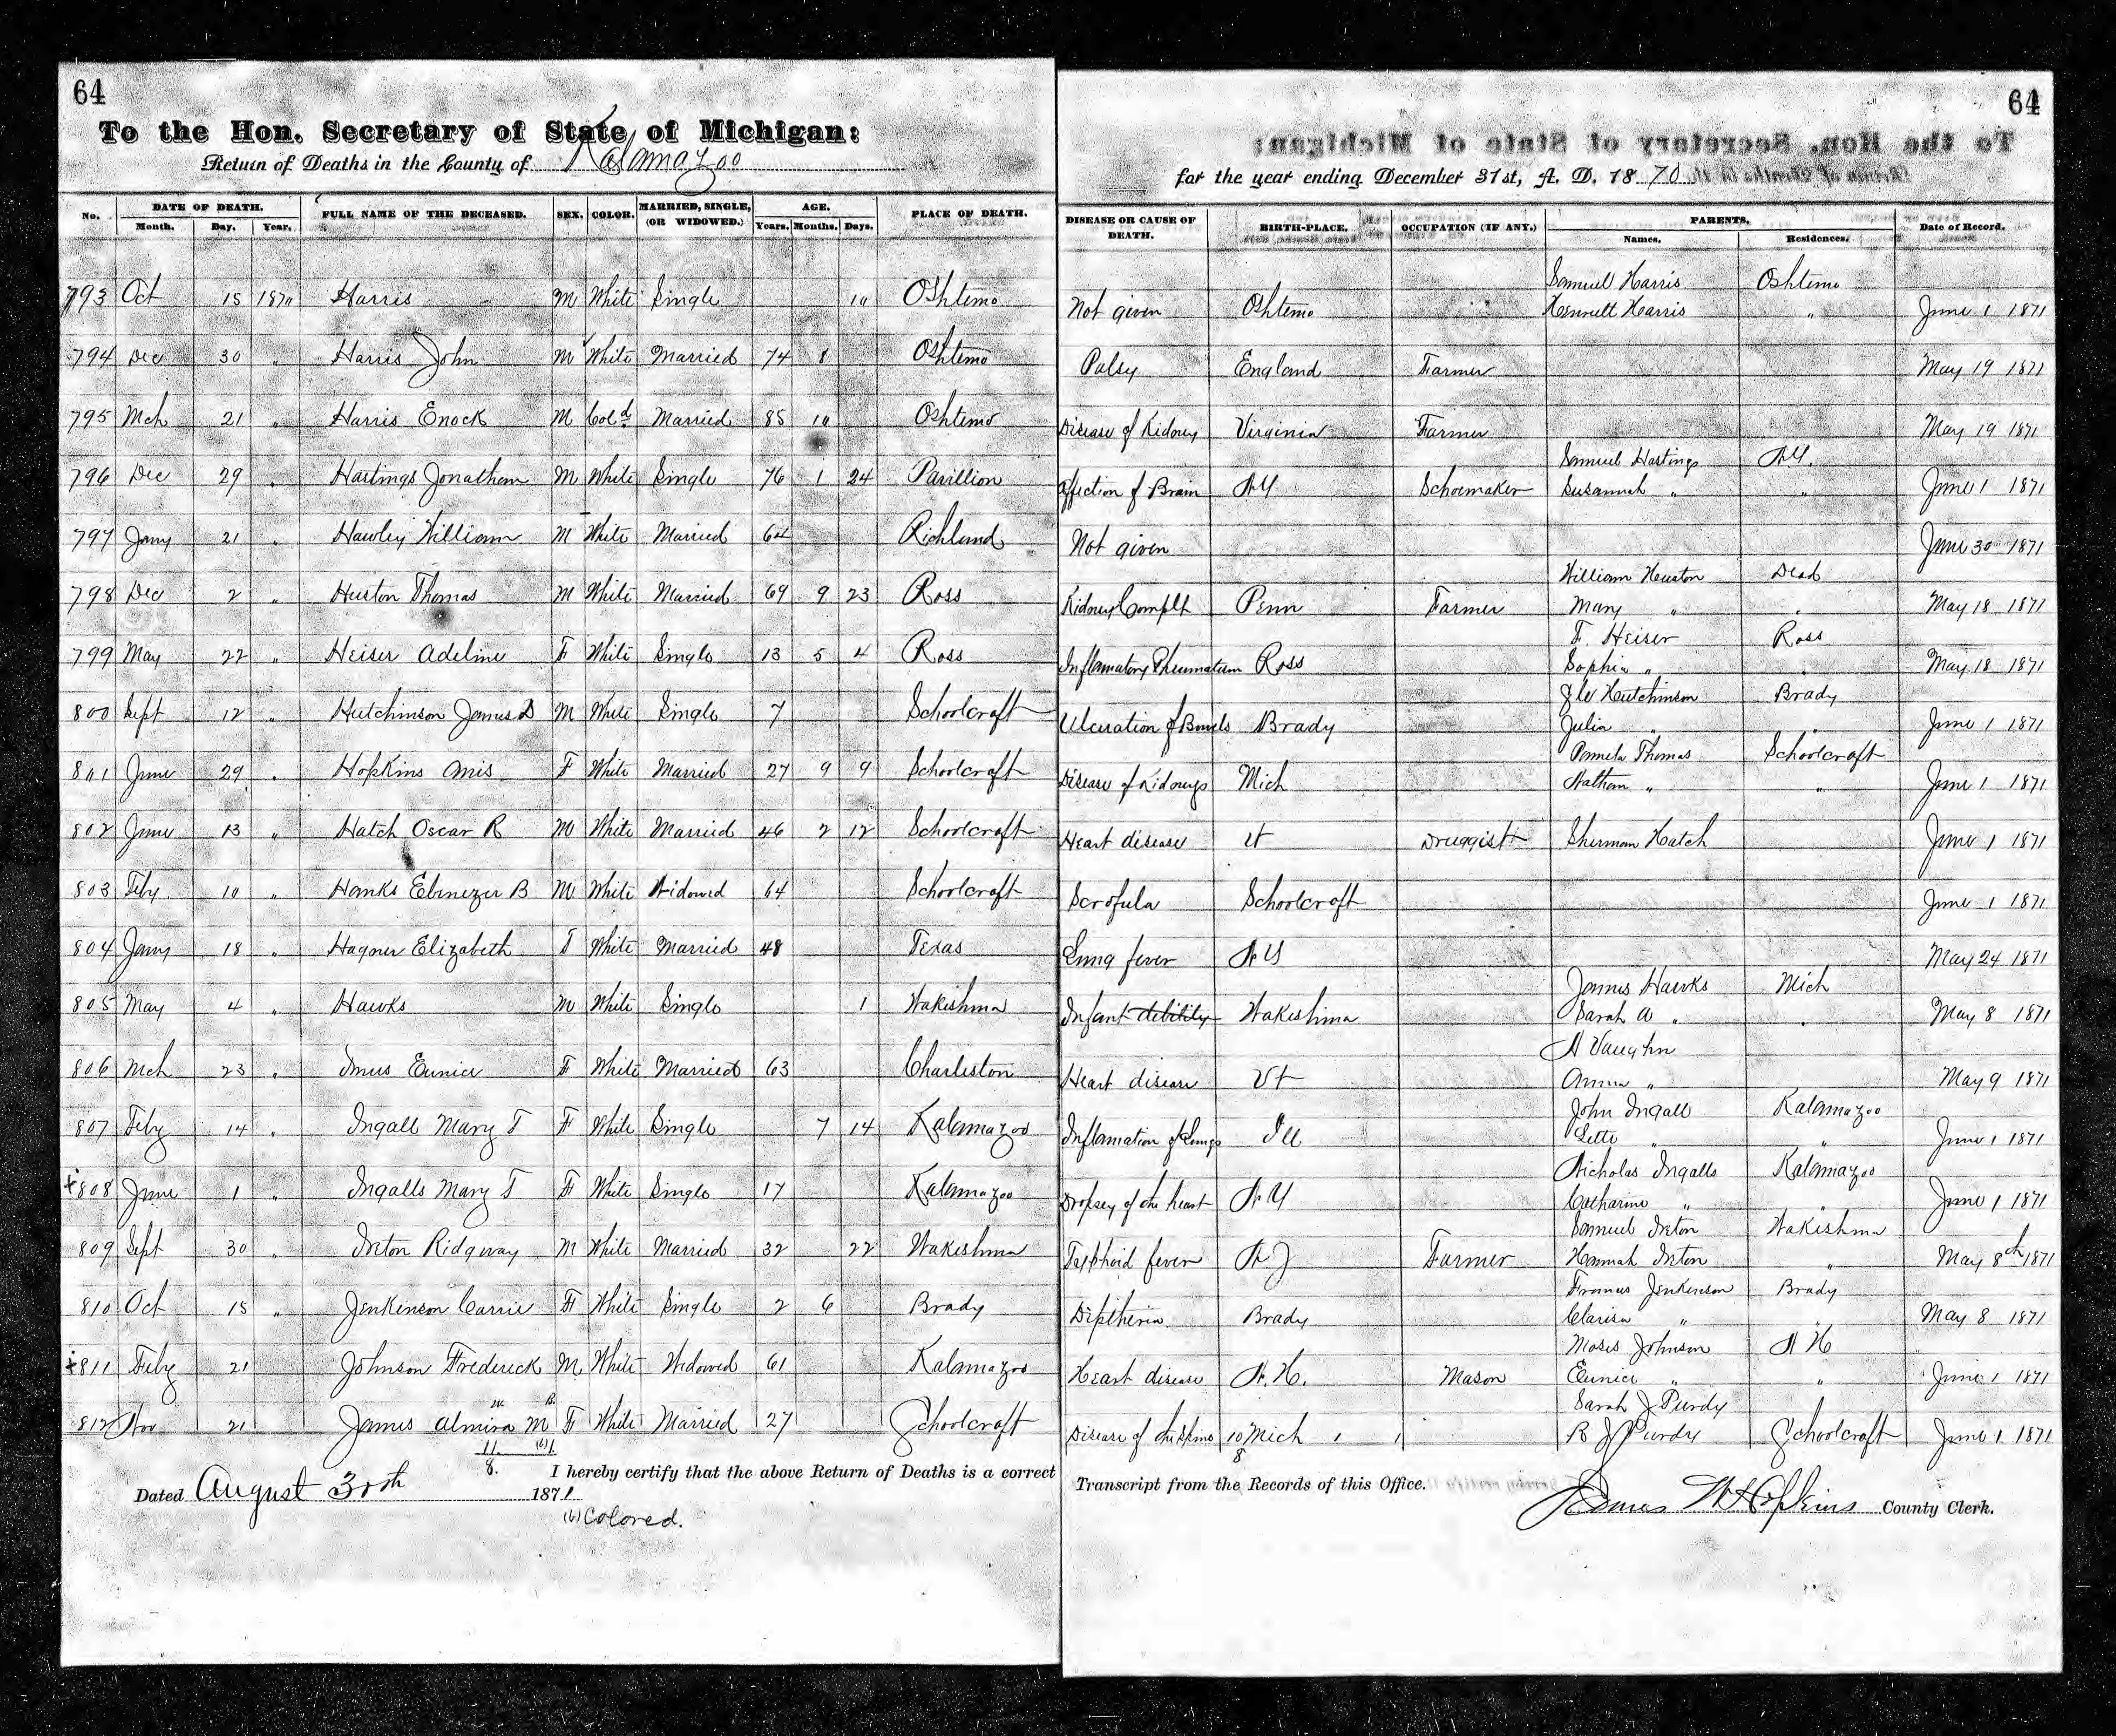 64
To the Hon. Secretary of State of Michigan:
Return of Deaths in the County of Kalamazoo
64
for the year ending December 31st, A. D. 1870
No. DATE OF DEATH. Month. Day. Year. FULL NAME OF THE DECEASED. SEX. COLOR. MARRIED, SINGLE, (OR WIDOWED.) AGE. Years. Months. Days. PLACE OF DEATH. DISEASE OR CAUSE OF DEATH. BIRTH-PLACE. OCCUPATION (IF ANY.) PARENTS. Names. Residences. Date of Record.
Samuel Harris Oshtemo
793 Oct 15 1870 Harris M White Single 10 Oshtemo Not given Oshtemo Harris " June 1 1871
794 Dec 30 " Harris John M White Married 74 8 Oshtemo Palsy England Farmer May 19 1871
795 Mch 21 " Harris Enock M Cold Married 85 10 Oshtemo Disease of Kidney Virginia Farmer May 19 1871
Samuel Hastings N.Y.
796 Dec 29 " Hastings Jonathan M White Single 76 1 24 Pavillion Affection of Brain N Y Schoemaker Susannah " " June 1 1871
797 Jany 21 " Hawley William M White Married 64 Richland Not given June 30 1871
William Huston Dead
798 Dec 2 " Huston Thomas M White Married 69 9 23 Ross Kidney Complt Penn Farmer Mary " " May 18 1871
F. Heiser Ross
799 May 22 " Heiser Adeline F White Single 13 5 4 Ross Inflamatory Rheumatism Ross Sophia " " May 18 1871
Hutchinson Brady
800 Sept 12 " Hutchinson James D M White Single 7 Schoolcraft Ulceration of Bowels Brady Julia " " June 1 1871
Pamela Thomas Schoolcraft
801 June 29 " Hopkins Anis F White Married 27 9 9 Schoolcraft Disease of Kidneys Mich Nathan " " June 1 1871
802 June 13 " Hatch Oscar R M White Married 46 2 12 Schoolcraft Heart disease Vt Druggist Sherman Hatch June 1 1871
803 Feby 10 " Hanks Ebenezer B M White Widowed 64 Schoolcraft Scrofula Schoolcraft June 1 1871
804 Jany 18 " Hagner Elizabeth F White Married 48 Texas Lung fever N Y May 24 1871
James Hawks Mich
805 May 4 " Hawks M White Single 1 Wakeshma Infant debility Wakeshma Sarah A " " May 8 1871
A Vaughn
806 Mch 23 " Imus Eunice F White Married 63 Charleston Heart disease Vt Anna " May 9 1871
John Ingall Kalamazoo
807 Feby 14 " Ingall Mary T F White Single 7 14 Kalamazoo Inflamation of Lungs Ill Lette " " June 1 1871
Nicholas Ingalls Kalamazoo
+808 June 1 " Ingalls Mary T F White Single 17 Kalamazoo Dropsey of the heart N Y Catharine " " June 1 1871
Samuel Ireton Wakeshma
809 Sept 30 " Ireton Ridgway M White Married 32 22 Wakeshma Typhoid fever N J Farmer Hannah Ireton " May 8th 1871
Francis Jenkinson Brady
810 Oct 15 " Jenkinson Carrie F White Single 2 6 Brady Diptheria Brady Clarisa " " May 8 1871
Moses Johnson N H
+811 Feby 21 Johnson Frederick M White Widowed 61 Kalamazoo Heart disease N.H. Mason Eunice " " June 1 1871
Sarah J Purdy
812 Nov 21 James Almira M F White Married 27 Schoolcraft Disease of the Mich R J Purdy Schoolcraft June 1 1871
W. B.
11. (6)1. 10
8. 8
I hereby certify that the above Return of Deaths is a correct Transcript from the Records of this Office.
Dated August 30th 1871
James W Hopkins County Clerk.
(6) Colored.